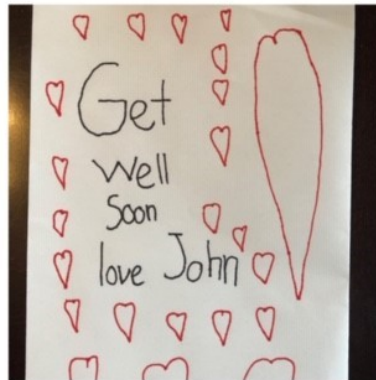 Get
Well
Soon
love John